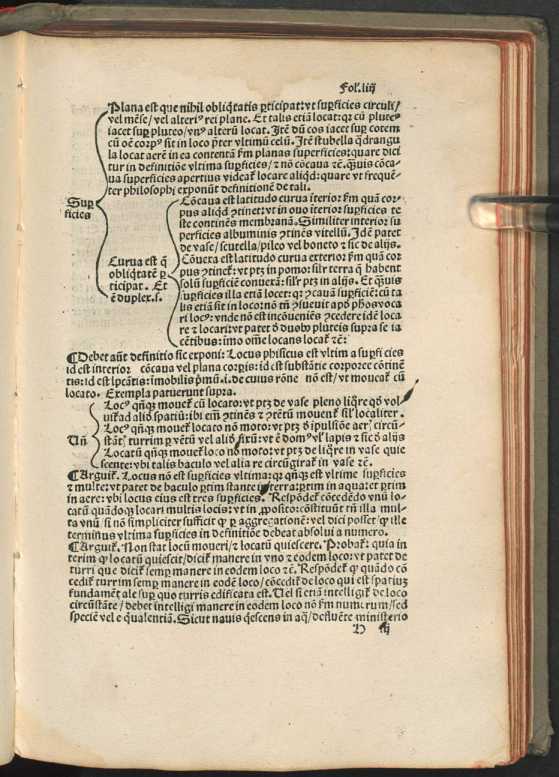 Fol. liij
Plana est que nihil obliq̃tatis ꝑticipat: vt suꝑficies circuli/
vel mẽse/ vel alteriꝰ rei plane. Et talis etiã locat: qꝛ cũ pluteꝰ
iacet suꝑ pluteo/ vnꝰ alterũ locat. Itẽ dũ cos iacet suꝑ cotem
cũ oẽ corpꝰ sit in loco p̃ter vltimũ celũ. Itẽ stubella q̃drangu
la locat aerẽ in ea contentã ẽm planas superficies: quare dici
tur in definitiõe vltima suꝑficies/ ⁊ nõ cõcaua ⁊c̃. quis cõca-
ua superficies apertius videat̃ locare aliqd: quare vt frequẽ-
ter philosophi exponũt definitionẽ de tali.
Suꝑ
ficies
Curua est q̃
obliqtatẽ ꝑ
ticipat. Et
ẽ duplex. s.
Cõcaua est latitudo curua ĩterior ẽm quã cor-
pus aliqd ꝯtinet: vt in ouo interior suꝑficies te
ste continẽs membranã. Similiter interior su
perficies albuminis ꝯtinẽs vitellũ. Idẽ patet
de vase/ scutella/ pileo vel boneto ⁊ sic de alijs.
Cõuexa est latitudo curua exterior ẽm quã cor
pus ꝯtinet̃: vt ptꝫ in pomo: sil̃r terra q̃ habent
solũ suꝑficiẽ conuexã: sil̃r ptꝫ in alijs. Et q̃uis
suꝑficies illa etiã locet: qꝛ ꝯcauã suꝑficiẽ: cũ ta
lis etiã sit in loco: nõ tñ ꝯiueuit apd̃ phos voca
ri locꝰ: vnde nõ est incõueniẽs ꝯcedere idẽ loca
re ⁊ locari: vt patet d̃ duobꝰ pluteis supra se ia
cẽtibus: imo oẽme locans locat̃ ⁊c̃:
¶ Debet aũt definitio sic exponi: Locus phisicus est vltima suꝑficies
id est interior cõcaua vel plana corꝑis: id est substãtie corporee cõtinẽ
tis: id est lp̃cãtis: imobilis p̃mũ. i. de cuius rõne nõ est/ vt moueat̃ cũ
locato. Exempla patuerunt supra.
Uñ
Locꝰ qñqꝫ mouet̃ cũ locato: vt ptꝫ de vase pleno liq̃re qd̃ vol-
uit̃ ad aliã spatiũ: ibi em̃ ꝯtinẽs ⁊ ꝯtẽtũ mouent̃ sil̃ localiter.
Locꝰ qñqꝫ mouet̃ locato nõ moto: vt ptꝫ d̃ ipulsiõe aerꝭ circũ-
stãtꝭ turrim ꝑ vẽtũ vel aliã fitũ: vt ẽ domꝰ vl̃ lapis ⁊ sic d̃ alijs
Locatũ qñqꝫ mouet̃ loco nõ moto: vt ptꝫ de liq̃re in vase quie
scente: vbi talis baculo vel alia re circũgirat̃ in vase ⁊c̃.
¶ Arguit̃. Locus nõ est suꝑficies vltima: qꝛ qñqꝫ est vltime suꝑficies
⁊ multe: vt patet de baculo ꝑtim stante in terra: ꝑtim in aqua: et ꝑtim
in aere: vbi locus eius est tres suꝑficies. Respõdet̃ cõcedẽdo vnũ lo-
catũ quãdoqꝫ locari multis locis: vt in ꝓposito: cõstituũt tñ illa mul-
ta vnũ si nõ simpliciter sufficit ꝙ ꝑ aggregationẽ: vel dici posset ꝙ ille
terminus vltima suꝑficies in definitiõe debeat absolui a numero.
¶ Arguit̃. Non stat locũ moueri/ ⁊ locatũ quiescere. Probat̃: quia in
terim ꝙ locatũ quiescit/ dicit̃ manere in vno ⁊ eodem loco: vt patet de
turri que dicit̃ semꝑ manere in eodem loco ⁊c̃. Respõdet̃ ꝙ quãdo cõ
cedit̃ turrim semꝑ manere in eodẽ loco/ cõcedit̃ de loco qui est spatiuꝫ
fundamẽtale suꝑ quo turris edificata est. Uel si etiã intelligit̃ de loco
circũstãte/ debet intelligi manere in eodem loco nõ ẽm numerum/ sed
speciẽ vel eq̃ualentiã. Sicut nauis qescens in aq̃/ defluẽte ministerio
D iij